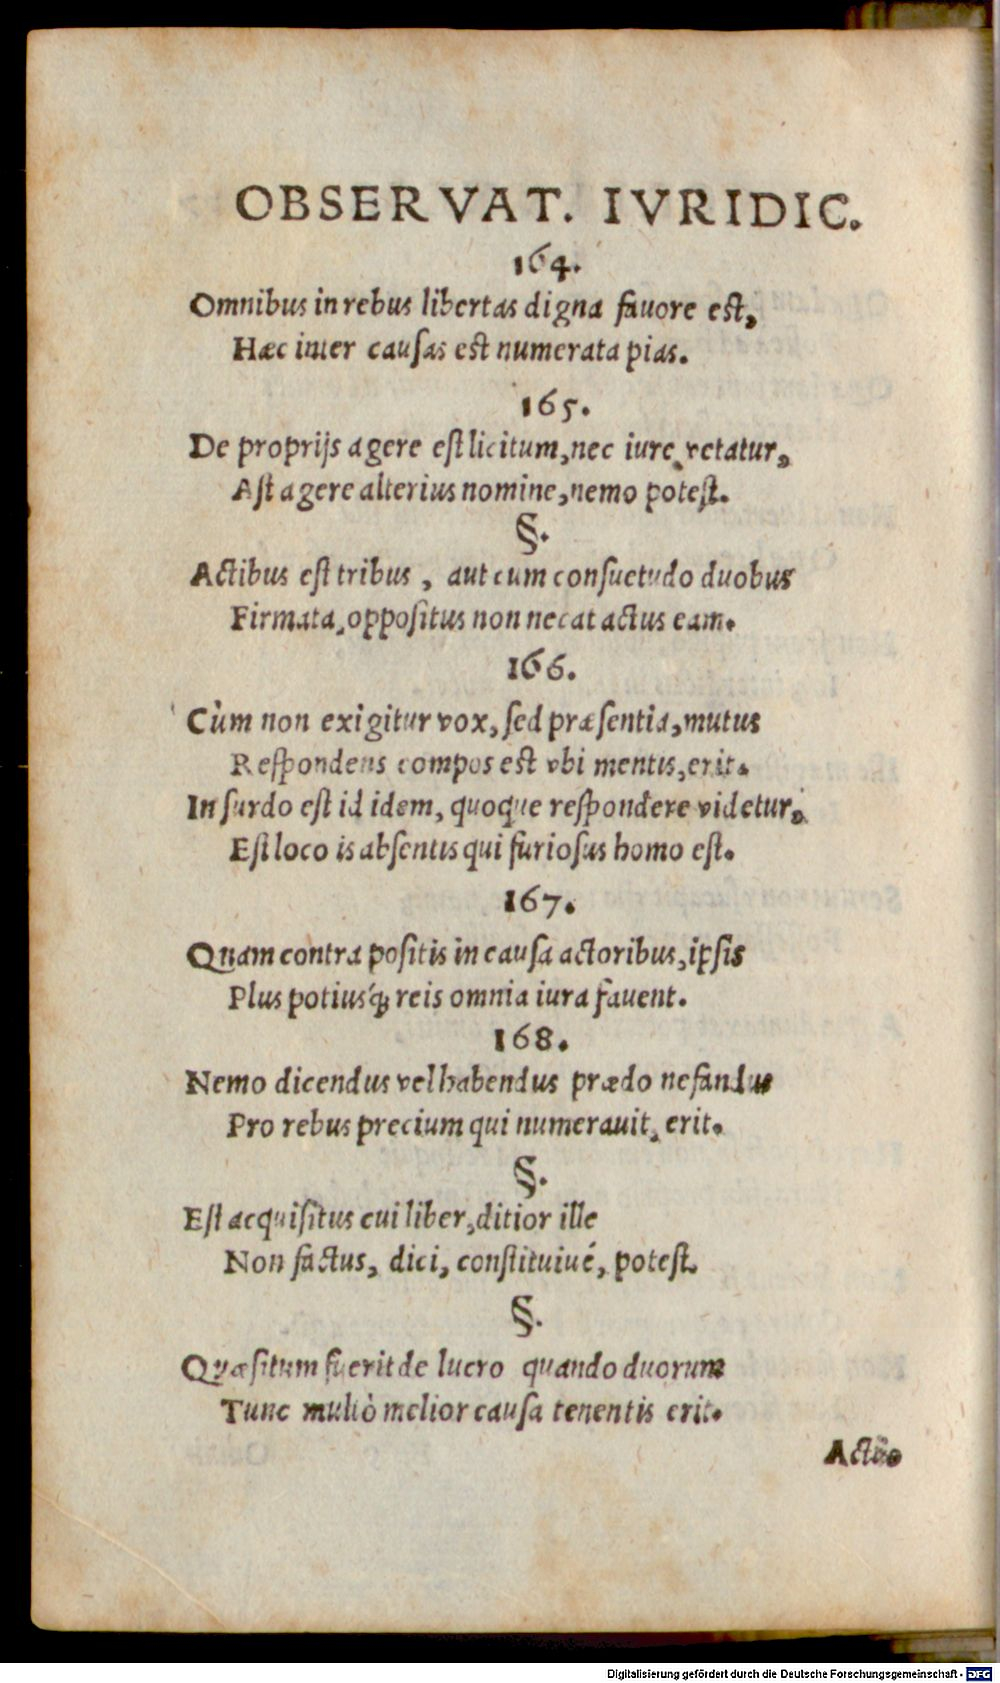 OBSERVAT. IVRIDIC.
164.
Omnibus in rebus libertas digna fauore est,
Hæc inter causas est numerata pias.
165.
De proprijs agere est licitum, nec iure vetatur,
Ast agere alterius nomine, nemo potest.
§.
Actibus est tribus, aut cum consuetudo duobus
Firmata, oppositus non necat actus eam.
166.
Cùm non exigitur vox, sed præsentia, mutus
Respondens compos est vbi mentis, erit.
In surdo est id idem, quoque respondere videtur,
Est loco is absentis qui furiosus homo est.
167.
Quam contra positis in causa actoribus, ipsis
Plus potiusq́ reis omnia iura fauent.
168.
Nemo dicendus vel habendus prædo nefandus
Pro rebus precium qui numerauit, erit.
§.
Est acquisitus cui liber, ditior ille
Non factus, dici, constituiué, potest.
§.
Quæsitum fuerit de lucro quando duorum
Tunc multò melior causa tenentis erit.
Digitalisierung gefördert durch die Deutsche Forschungsgemeinschaft - DFG